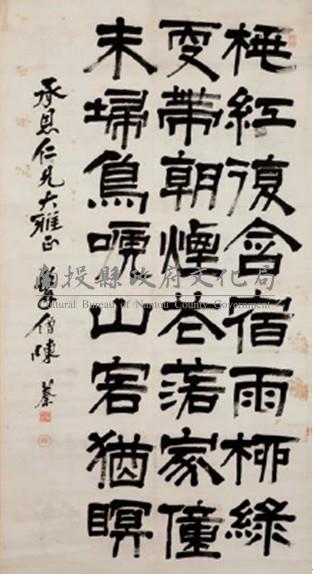 桃紅復含宿雨柳綠
更帶朝煙花落家僮
未埽鳥嗁山客猶瞑
承恩仁兄大雅正 僧陳蓁
南投縣政府文化局
Cultural Bureau of Nantou County Government